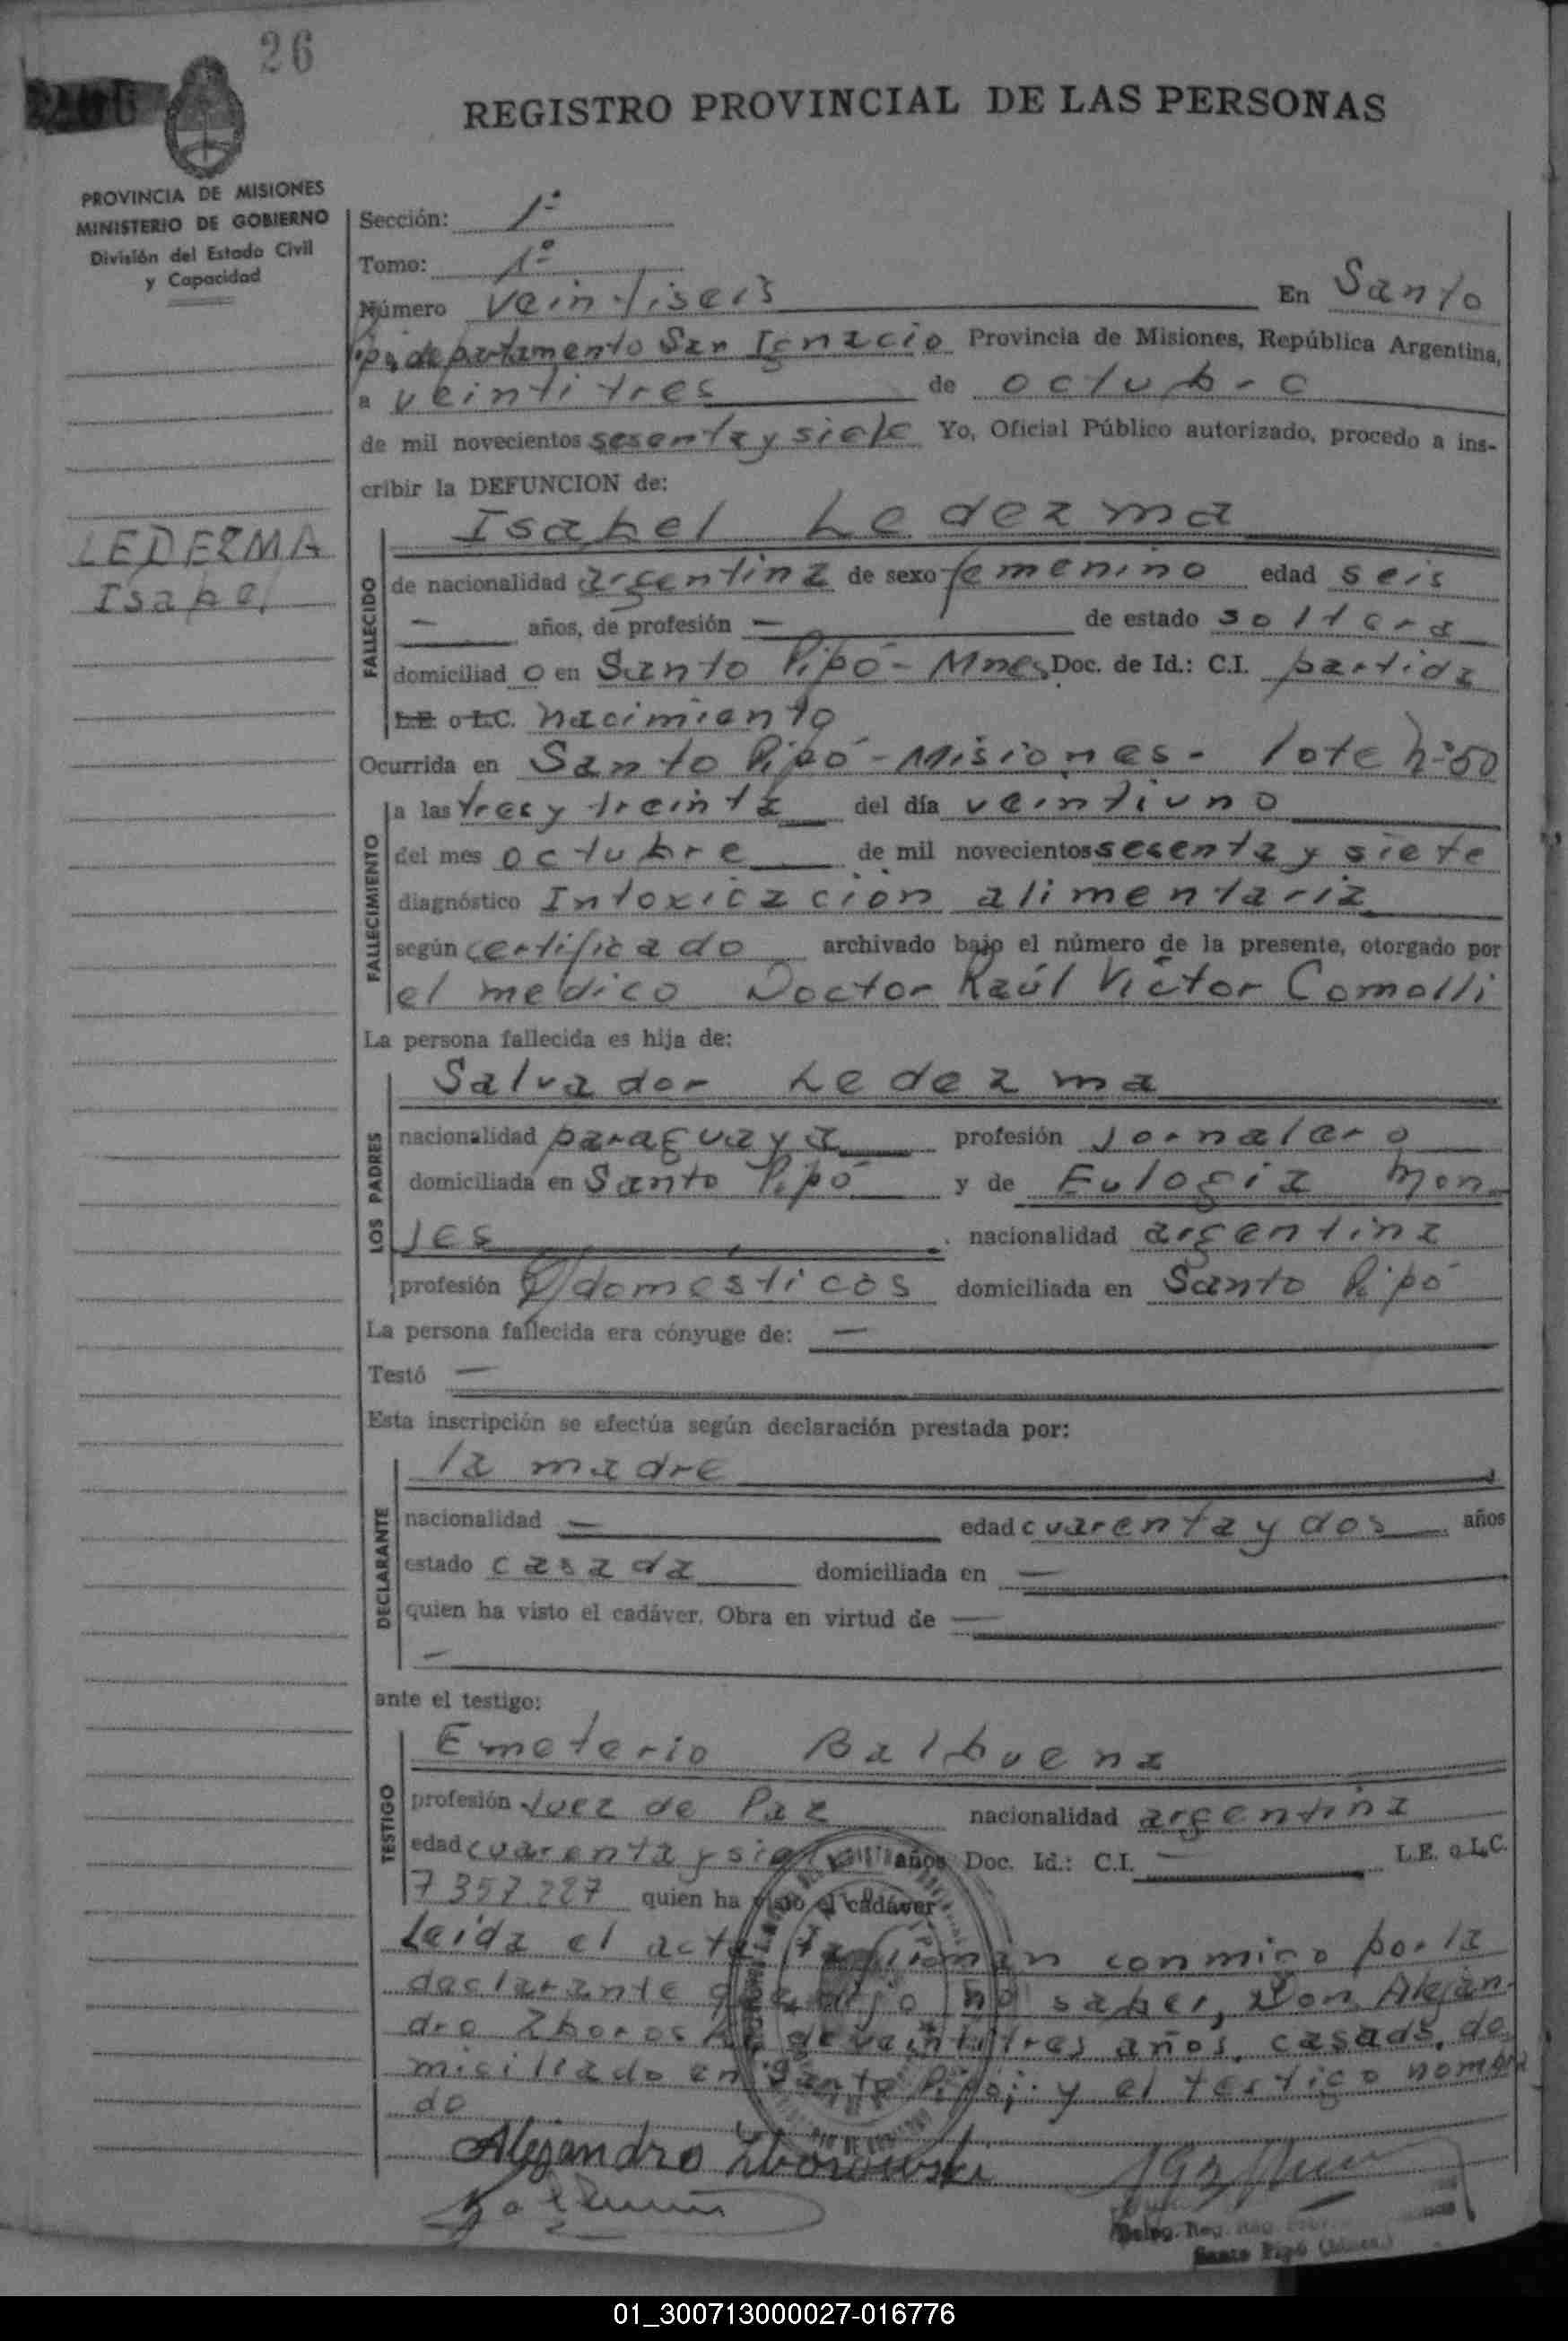 26
REGISTRO PROVINCIAL DE LAS PERSONAS
PROVINCIA DE MISIONES
MINISTERIO DE GOBIERNO
División del Estado Civil
y Capacidad
LEDEZMA
Isabel
Sección: 1ª
Tomo: 1º
Número veintiseis En Santo
Pipó, departamento San Ignacio Provincia de Misiones, República Argentina,
a veintitres de octubre
de mil novecientos sesenta y siete Yo, Oficial Público autorizado, procedo a ins-
cribir la DEFUNCION de:
Isabel Ledezma
FALLECIDO
de nacionalidad argentina de sexo femenino edad seis
— años, de profesión — de estado soltera
domiciliad o en Santo Pipó - Mnes Doc. de Id.: C.I. partida
L.E. o L.C. nacimiento
Ocurrida en Santo Pipó - Misiones - lote nº 50
FALLECIMIENTO
a las tres y treinta del día veintiuno
del mes octubre de mil novecientos sesenta y siete
diagnóstico Intoxicación alimentaria
según certificado archivado bajo el número de la presente, otorgado por
el medico Doctor Raúl Víctor Comolli
La persona fallecida es hija de:
LOS PADRES
Salvador Ledezma
nacionalidad paraguaya profesión jornalero
domiciliada en Santo Pipó y de Eulogia Mon
jes nacionalidad argentina
profesión Q/domesticos domiciliada en Santo Pipó
La persona fallecida era cónyuge de: —
Testó —
Esta inscripción se efectúa según declaración prestada por:
DECLARANTE
la madre
nacionalidad — edad cuarenta y dos años
estado casada domiciliada en —
quien ha visto el cadáver. Obra en virtud de —
—
ante el testigo:
TESTIGO
Emeterio Balbuena
profesión Juez de Paz nacionalidad argentina
edad cuarenta y siete años Doc. Id.: C.I. — L.E. o L.C.
7357.227 quien ha visto el cadáver
Leida el acta la firman conmigo por la
declarante que dijo no saber, Don Alejan-
dro Zboroski de veintitres años, casado, do
miciliado en Santo Pipó; y el testigo nombra
do
Alejandro Zborowski
Deleg. Reg.
Santo Pipó
01_300713000027-016776